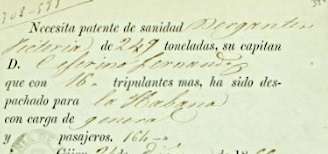 Necesita patente de sanidad Bergantin
Victoria de 249 toneladas, su capitan
D. Ceferino Fernandez
que con 16 tripulantes mas, ha sido des-
pachado para la Habana
con carga de general
y pasajeros, 164
Gijon 21 de